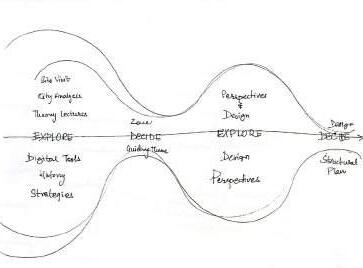 Site Visit
City Analysis
Theory Lectures
EXPLORE
Digital Tools
History
Strategies
Zone
DECIDE
Guiding Theme
Perspectives
Design
EXPLORE
Design
Perspectives
Design
DECIDE
Structural
Plan